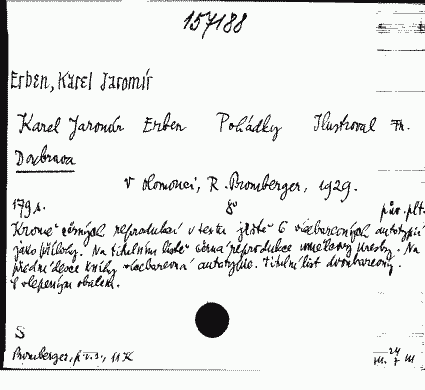 157188
Erben, Karel Jaromír
Karel Jaromír Erben Pohádky Ilustroval Fr.
Doubrava
V Olomouci, R. Promberger, 1929.
179 s. 8° pův. plt.
Kromě černých reprodukcí v textu ještě 6 vícebarevných autotypií
jako přílohy. Na titulním listě černá reprodukce umělcovy kresby. Na
přední desce knihy vícebarevná autotypie. Titulní list dvoubarevný.
S slepeným obalem.
S
Promberger, p.v.s., 11 K